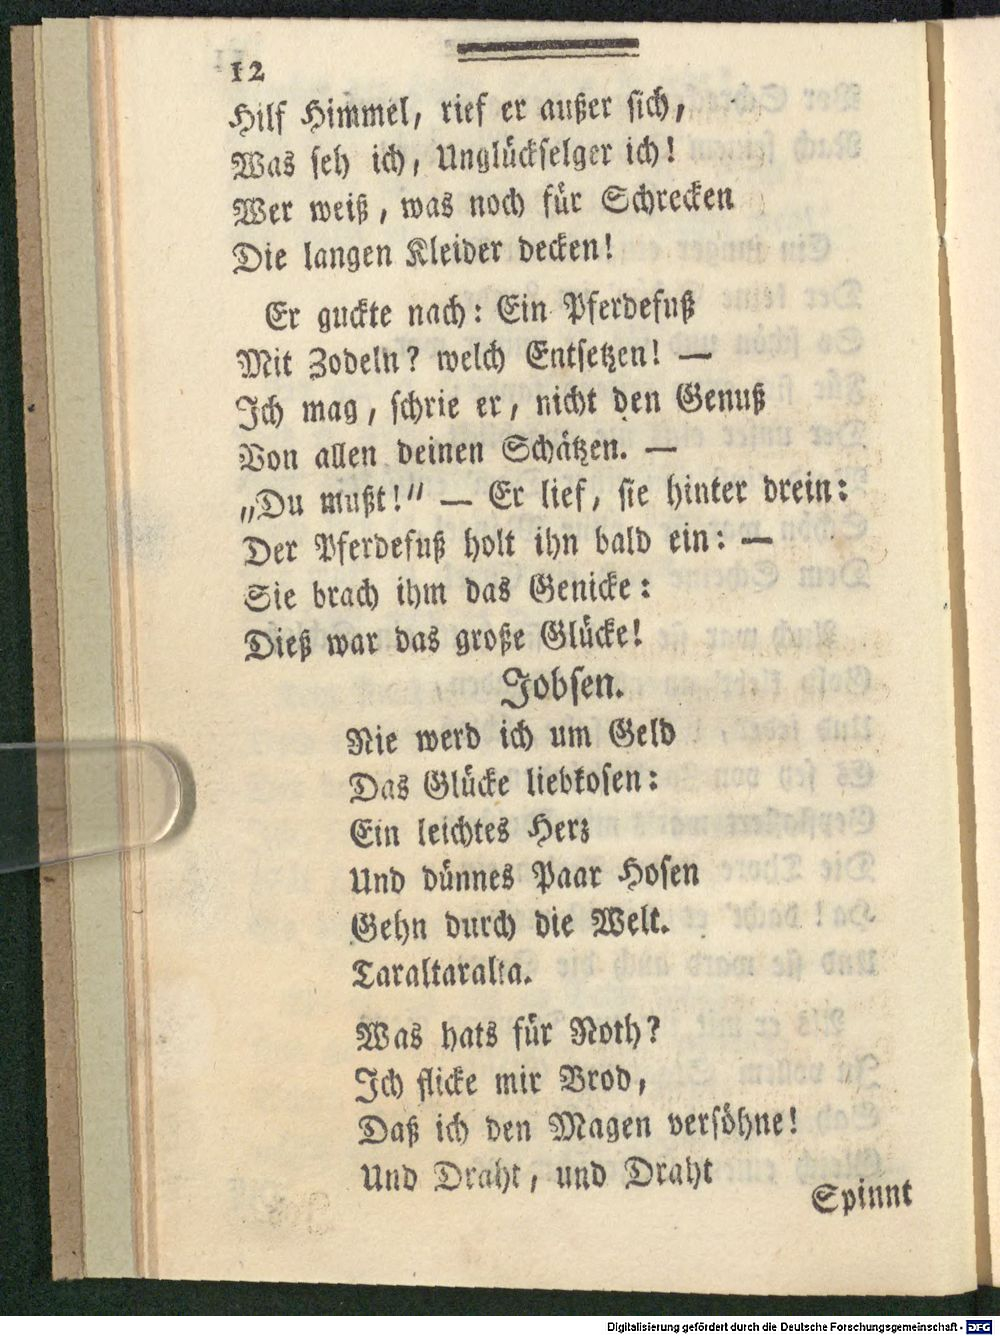 12
Hilf Himmel, rief er außer sich,
Was seh ich, Unglückselger ich!
Wer weiß, was noch für Schrecken
Die langen Kleider decken!
Er guckte nach: Ein Pferdefuß
Mit Zodeln? welch Entsetzen! —
Ich mag, schrie er, nicht den Genuß
Von allen deinen Schätzen. —
„Du mußt!“ — Er lief, sie hinter drein:
Der Pferdefuß holt ihn bald ein: —
Sie brach ihm das Genicke:
Dieß war das große Glücke!
Jobsen.
Nie werd ich um Geld
Das Glücke liebkosen:
Ein leichtes Herz
Und dünnes Paar Hosen
Gehn durch die Welt.
Taraltaralta.
Was hats für Noth?
Ich flicke mir Brod,
Daß ich den Magen versöhne!
Und Draht, und Draht
Spinnt
Digitalisierung gefördert durch die Deutsche Forschungsgemeinschaft - DFG